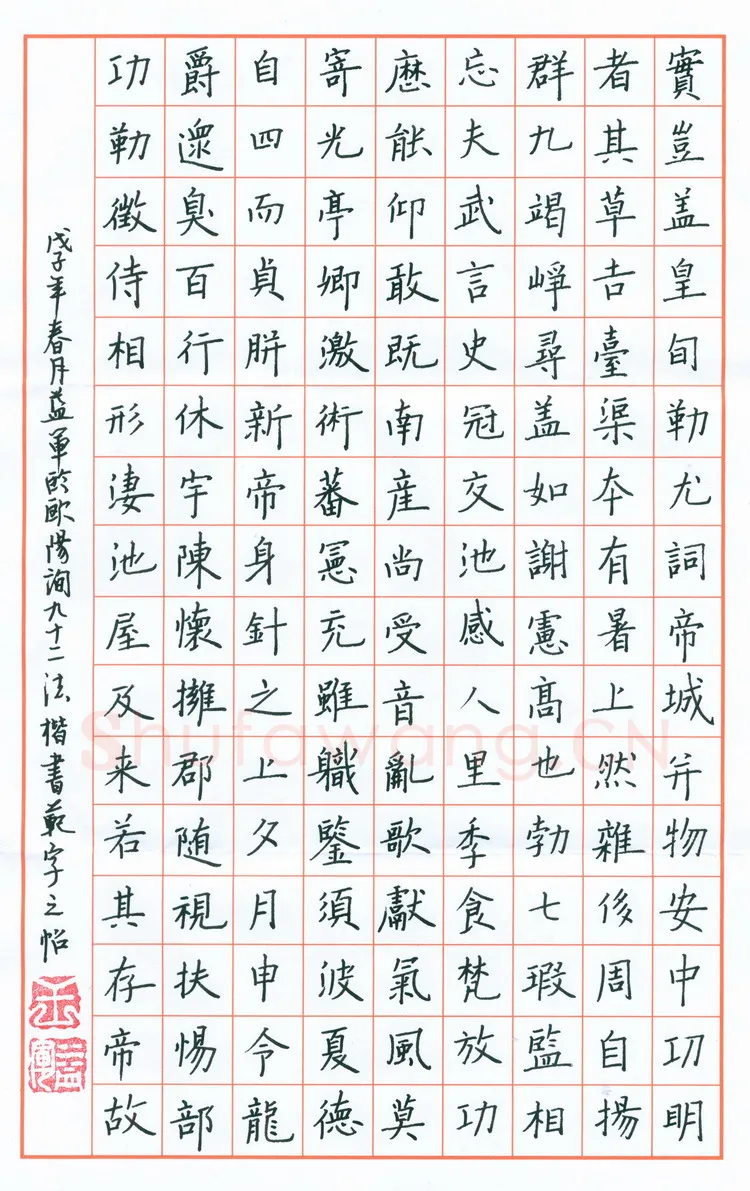 實豈盖皇旬勒尤詞帝城并物安中功明
者其草吉臺渠本有暑上然雜後周自揚
群九竭崢尋盖如謝憲高也勃七瑕監相
忘夫武言史冠交池感人里季食梵放功
歷能仰敢既南産尚受音亂歌獻氣風莫
寄光亭卿激術蕃憲充雖職鑒須波夏德
自四而貞胼新帝身針之上夕月申令龍
爵邃臭百行休宇陳懷擁郡随視扶惕部
功勒徵侍相形淒池屋及来若其存帝故
戊子年春月益軍臨歐陽詢九十二法楷書範字之帖
Shufawang.CN